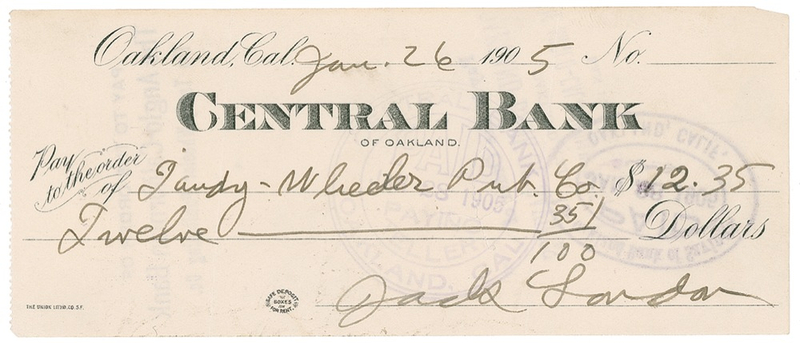 Oakland, Cal. Jan. 26 1905 No.
CENTRAL BANK
OF OAKLAND.
Pay to the order of Tandy-Wheeler Pub. Co. $12.35
Twelve 35/100 Dollars
THE UNION LITHO. CO. S.F.
SAFE DEPOSIT BOXES FOR RENT.
Jack London